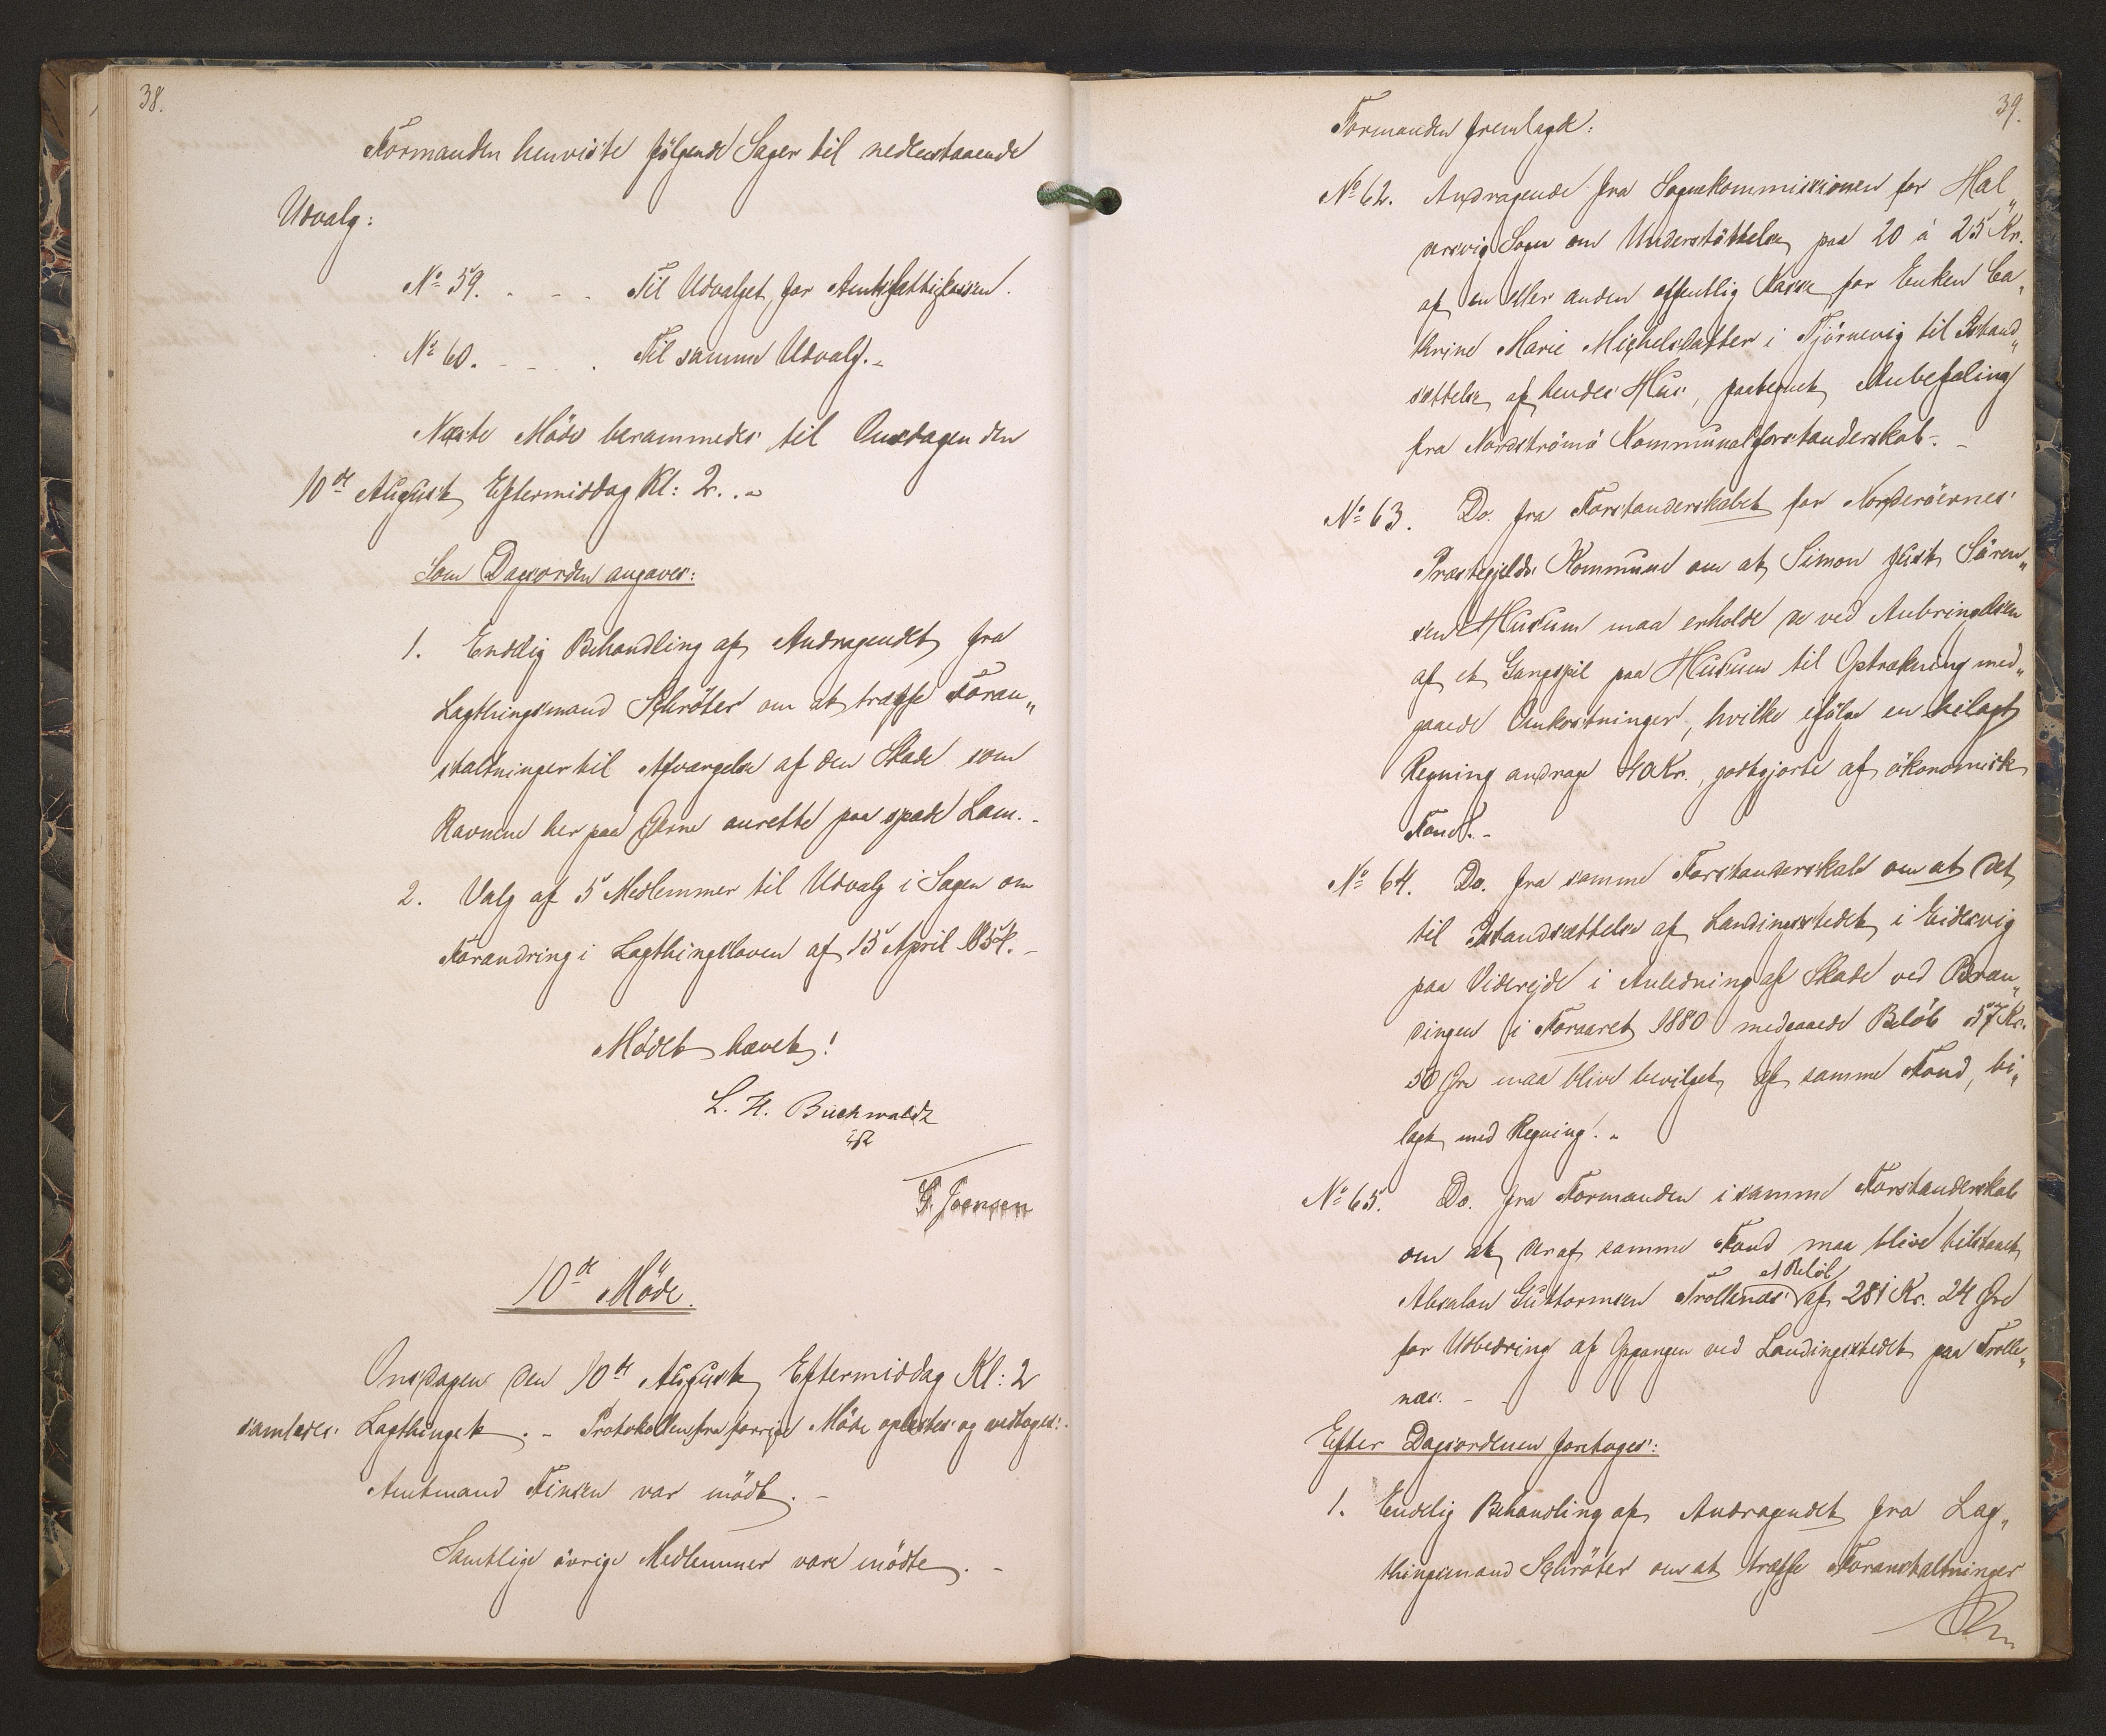 38.
Formanden henviste følgende Sager til nedenstaaende
Udvalg:
No 59. . - . Til Udvalget for Amtsfattigkassen.
No 60. - - . Til samme Udvalg. -
Næste Möde berammedes til Onsdagen den
10de August Eftermiddag Kl: 2. . -
Som Dagsorden angaves:
1. Endelig Behandling af Andragendet fra
Lagthingsmand Schröter om at træffe Foran„
staltninger til Afværgelse af den Skade som
Ravnene her paa Øerne anrette paa spæde Lam. -
2. Valg af 5 Medlemmer til Udvalg i Sagen om
Forandring i Lagthingsloven af 15 April 1854. -
Mödet hævet!
L. H. Buchwaldt
J. Joensen
10de Möde.
Onsdagen den 10de August Eftermiddag Kl: 2
samledes Lagthinget. - Protokollen fra forrige Möde oplæstes og vedtoges.
Amtmand Finsen var mödt. -
Samtlige övrige Medlemmer vare mödte. -
39.
Formanden fremlagde:
No 62. Andragende fra Sognekommissionen for Hal„
darsvig Sogn om Understöttelse paa 20 à 25 Kr.
af en eller anden offentlig Kasse for Enken Ca„
thrine Marie Michelsdatter i Tjörnevig til Istand„
sættelse af hendes Hus, paategnet Anbefaling
fra Nordströmö Kommunalforstanderskab. -
No 63. Do. fra Forstanderskabet for Norderöernes
Præstegjelds Kommune om at Simon Just Sören„
sen Husum maa erholde de ved Anbringelsen
af et Gangspil paa Husum til Optrækning med„
gaaede Omkostninger, hvilke ifölge en bilagt
Regning andrage 40 Kr., godtgjorte af ökonomisk
Fond. -
No 64. Do. fra samme Forstanderskab om at det
til Istandsættelse af Landingsstedet i Eidesvig
paa Videreide i Anledning af Skade ved Bræn„
dingen i Foraaret 1880 medgaaede Belöb 57 Kr.
50 Øre maa blive bevilget af samme Fond, bi„
lagt med Regning. -
No 65. Do. fra Formanden i samme Forstanderskab
om at der af samme Fond maa blive tilstaaet
Absalon Guttormsen Trollenæs et Belöb af 281 Kr. 24 Øre
for Udbedring af Opgangen ved Landingsstedet paa Trolle„
næs. -
Efter Dagsordenen foretoges:
1. Endelig Behandling af Andragendet fra Lag„
thingsmand Schröter om at træffe Foranstaltninger